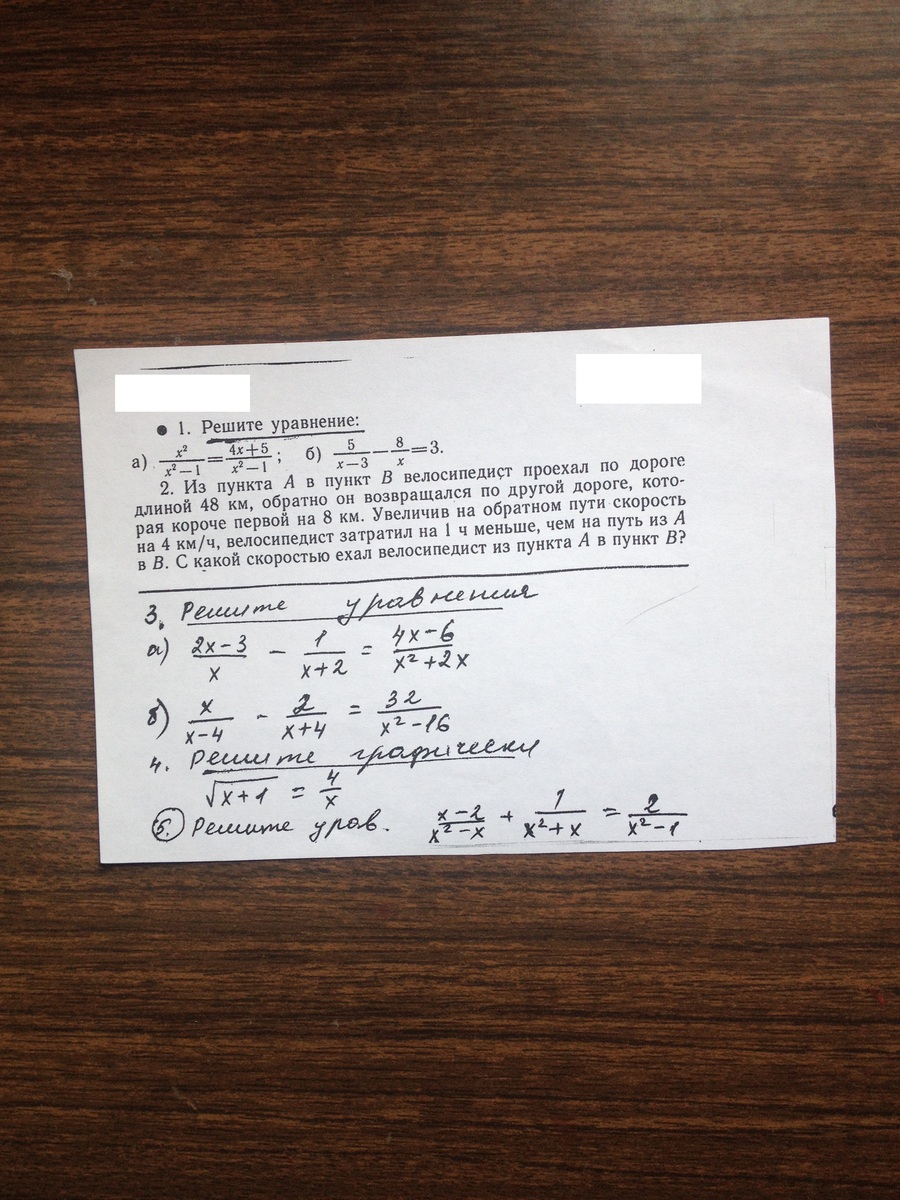 ● 1. Решите уравнение:
а) x²/(x²−1) = (4x+5)/(x²−1); б) 5/(x−3) − 8/x = 3.
2. Из пункта A в пункт B велосипедист проехал по дороге
длиной 48 км, обратно он возвращался по другой дороге, кото-
рая короче первой на 8 км. Увеличив на обратном пути скорость
на 4 км/ч, велосипедист затратил на 1 ч меньше, чем на путь из A
в B. С какой скоростью ехал велосипедист из пункта A в пункт B?
3. Решите уравнения
а) (2x−3)/x − 1/(x+2) = (4x−6)/(x²+2x)
б) x/(x−4) − 2/(x+4) = 32/(x²−16)
4. Решите графически
√(x+1) = 4/x
5. Решите урав. (x−2)/(x²−x) + 1/(x²+x) = 2/(x²−1)